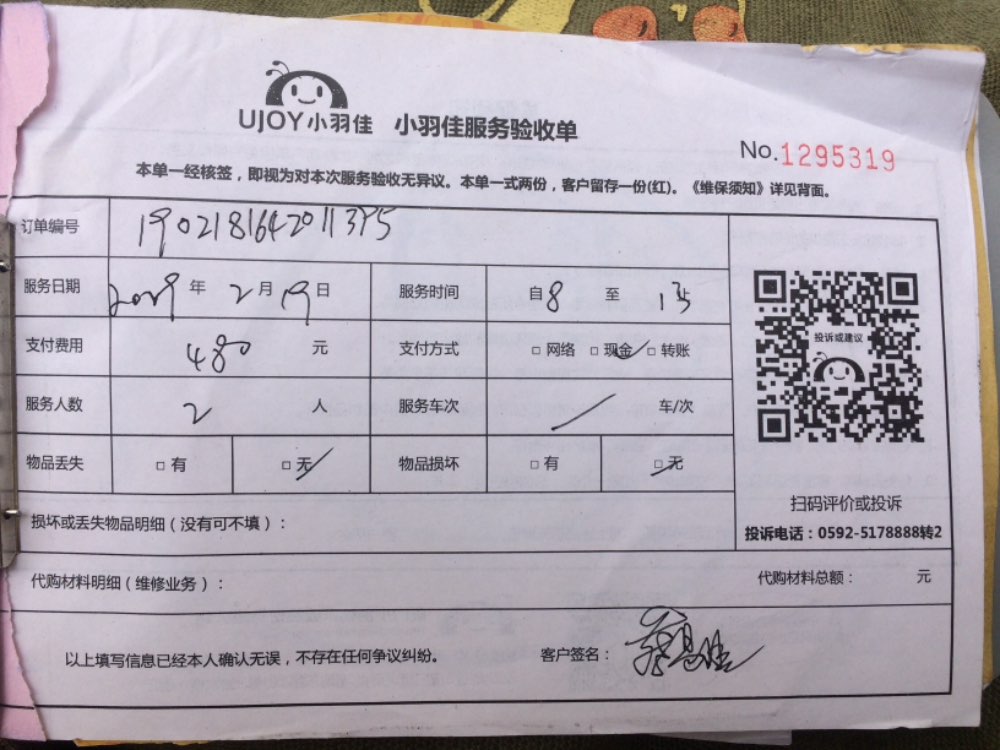 UJOY小羽佳 小羽佳服务验收单
No.1295319
本单一经核签，即视为对本次服务验收无异议。本单一式两份，客户留存一份(红)。《维保须知》详见背面。
订单编号 1902181642011375
服务日期 2019 年 2 月 19 日 服务时间 自 8 至
支付费用 480 元 支付方式 □ 网络 □ 现金 □ 转账
投诉或建议
服务人数 2 人 服务车次 / 车/次
物品丢失 □ 有 □ 无 物品损坏 □ 有 □ 无
扫码评价或投诉
损坏或丢失物品明细（没有可不填）：
投诉电话：0592-5178888转2
代购材料明细（维修业务）： 代购材料总额： 元
以上填写信息已经本人确认无误，不存在任何争议纠纷。 客户签名：